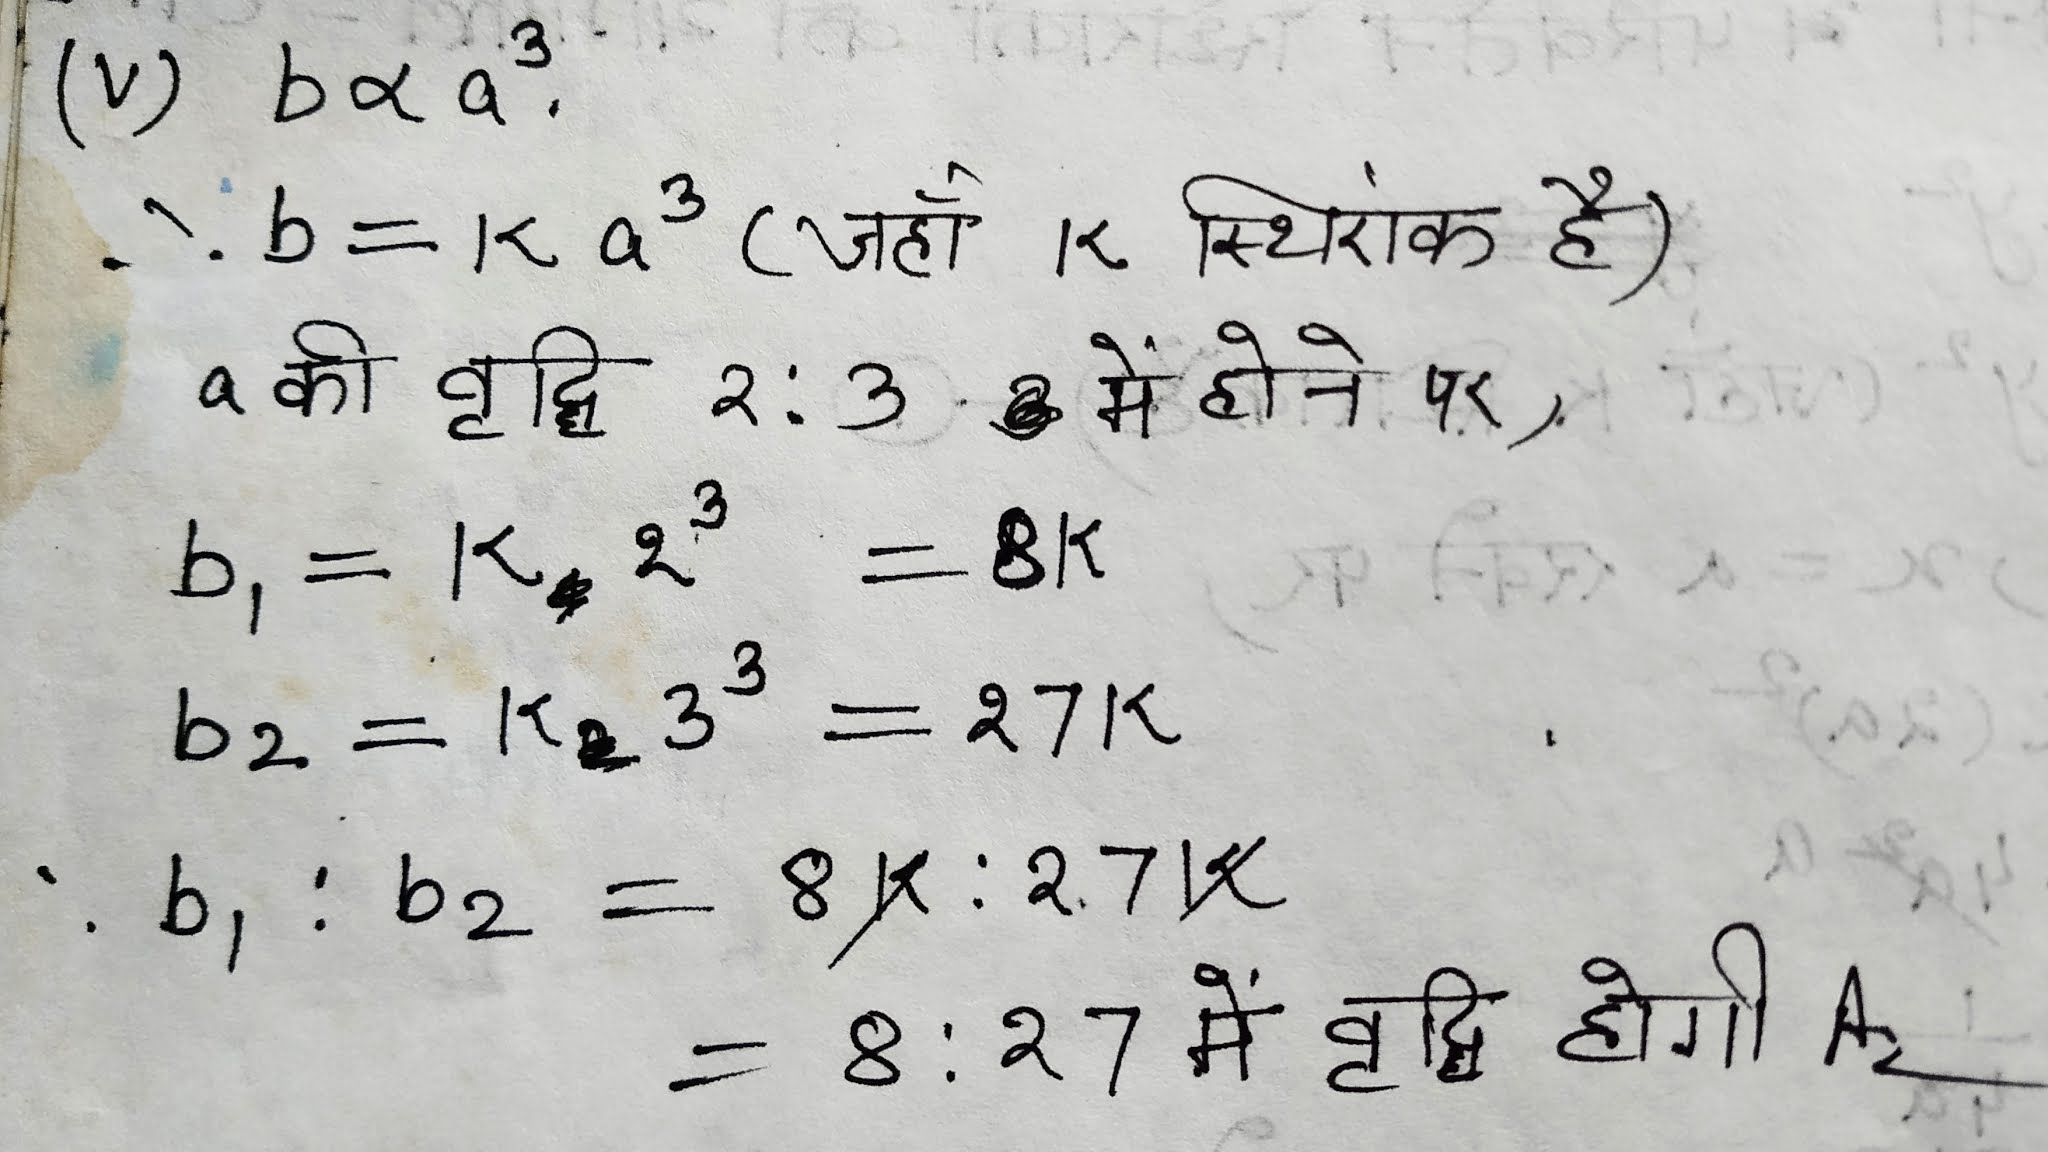 (v) b ∝ a³.
∴ b = K a³ (जहाँ K स्थिरांक है)
a की वृद्धि 2:3 में होने पर,
b₁ = K 2³ = 8K
b₂ = K 3³ = 27K
∴ b₁ : b₂ = 8K : 27K
= 8:27 में वृद्धि होगी A₂